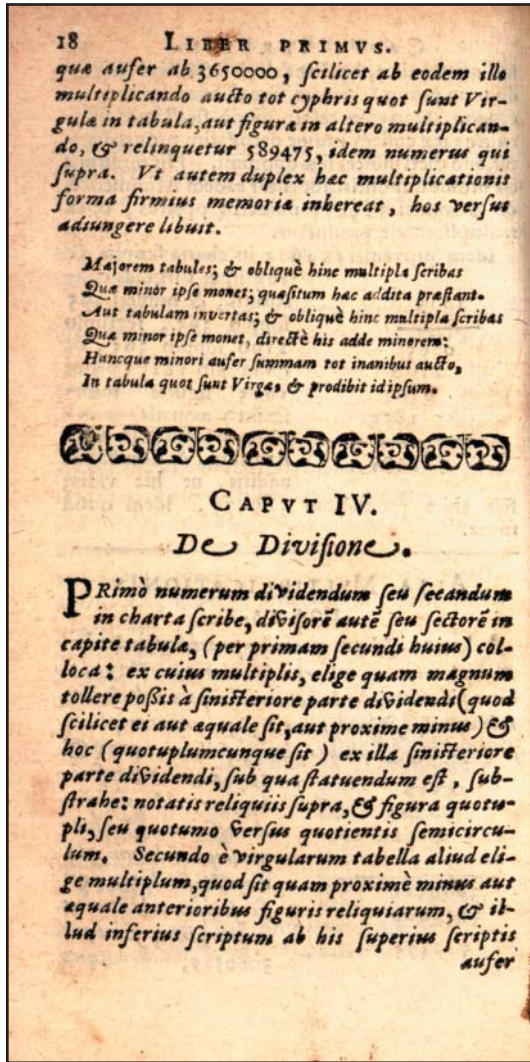 18 LIBER PRIMVS.
quæ aufer ab 3650000, ſcilicet ab eodem illo
multiplicando aucto tot cyphris quot ſunt Vir-
gulæ in tabula, aut figuræ in altero multiplican-
do, & relinquetur 589475, idem numerus qui
ſupra. Vt autem duplex hæc multiplicationis
forma firmius memoriæ inhereat, hos verſus
adiungere libuit.
Majorem tabules; & obliquè hinc multipla ſcribas
Quæ minor ipſe monet; quæſitum hæc addita præſtant.
Aut tabulam invertas; & obliquè hinc multipla ſcribas
Quæ minor ipſe monet, directè his adde minorem:
Hancque minori aufer ſummam tot inanibus aucto,
In tabula quot ſunt Virgæ, & prodibit id ipſum.
CAPVT IV.
De Diviſione.
PRimò numerum dividendum ſeu ſecandum
in charta ſcribe, diviſorē autē ſeu ſectorē in
capite tabulæ, (per primam ſecundi huius) col-
loca: ex cuius multiplis, elige quam magnum
tollere poßis à ſiniſteriore parte dividendi (quod
ſcilicet ei aut æquale ſit, aut proxime minus) &
hoc (quotuplumcunque ſit) ex illa ſiniſteriore
parte dividendi, ſub qua ſtatuendum eſt, ſub-
ſtrahe: notatis reliquiis ſupra, & figura quotu-
pli, ſeu quotumo verſus quotientis ſemicircu-
lum. Secundo è virgularum tabella aliud eli-
ge multiplum, quod ſit quam proximè minus aut
æquale anterioribus figuris reliquiarum, & il-
lud inferius ſcriptum ab his ſuperius ſcriptis
aufer